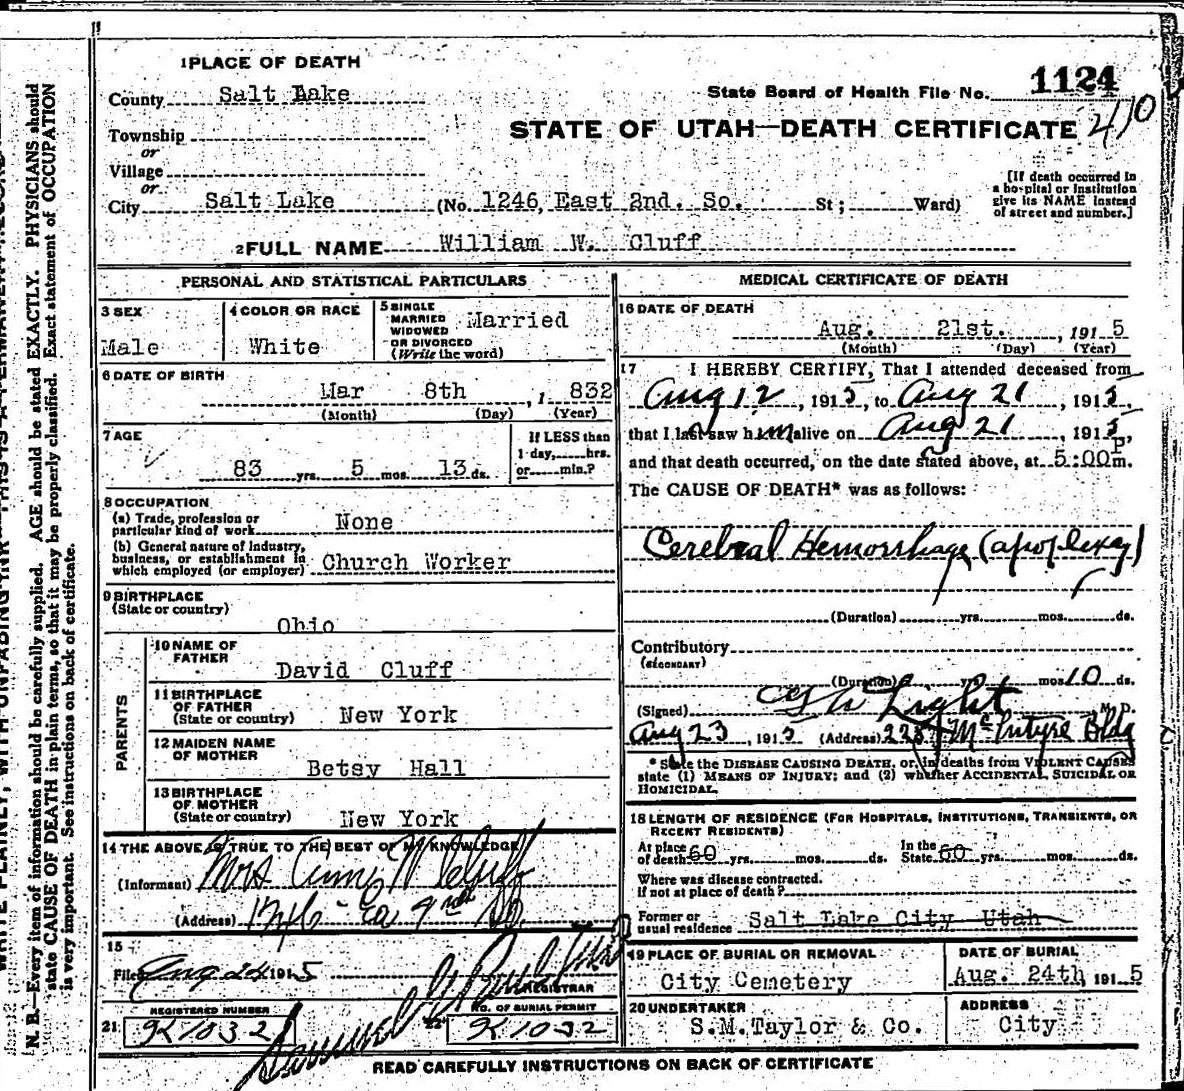 1 PLACE OF DEATH
County Salt Lake
State Board of Health File No. 1124
STATE OF UTAH—DEATH CERTIFICATE 410
Township
or
Village
or
City Salt Lake (No. 1246, East 2nd. So. St; Ward)
[If death occurred in
a hospital or institution
give its NAME instead
of street and number.]
2 FULL NAME William W. Cluff
PERSONAL AND STATISTICAL PARTICULARS
3 SEX
Male
4 COLOR OR RACE
White
5 SINGLE
MARRIED
WIDOWED
OR DIVORCED
(Write the word)
Married
6 DATE OF BIRTH
Mar 8th , 1 832
(Month) (Day) (Year)
7 AGE
83 yrs. 5 mos. 13 ds.
If LESS than
1 day, hrs.
or min.?
8 OCCUPATION
(a) Trade, profession or
particular kind of work None
(b) General nature of industry,
business, or establishment in
which employed (or employer) Church Worker
9 BIRTHPLACE
(State or country)
Ohio
PARENTS
10 NAME OF
FATHER
David Cluff
11 BIRTHPLACE
OF FATHER
(State or country) New York
12 MAIDEN NAME
OF MOTHER
Betsy Hall
13 BIRTHPLACE
OF MOTHER
(State or country) New York
14 THE ABOVE IS TRUE TO THE BEST OF MY KNOWLEDGE
(Informant) Mrs Cluff
(Address) 1246
15
Filed Aug 24 191 5
REGISTRAR
REGISTERED NUMBER
NO. OF BURIAL PERMIT
21 K1032
22 K1032
MEDICAL CERTIFICATE OF DEATH
16 DATE OF DEATH
Aug. 21st. , 191 5
(Month) (Day) (Year)
17 I HEREBY CERTIFY, That I attended deceased from
Aug 12 , 191 5, to Aug 21 , 191 5,
that I last saw him alive on Aug 21 , 191 5,
and that death occurred, on the date stated above, at 5:00 P m.
The CAUSE OF DEATH* was as follows:
Cerebral Hemorrhage (apoplexy)
(Duration) yrs. mos. ds.
Contributory
(SECONDARY)
(Duration) yrs. mos. 10 ds.
(Signed) Light M.D.
Aug 23 , 191 5 (Address) McIntyre Bldg
* State the DISEASE CAUSING DEATH, or, in deaths from VIOLENT CAUSES
state (1) MEANS OF INJURY; and (2) whether ACCIDENTAL, SUICIDAL OR
HOMICIDAL.
18 LENGTH OF RESIDENCE (FOR HOSPITALS, INSTITUTIONS, TRANSIENTS, OR
RECENT RESIDENTS)
At place
of death 60 yrs. mos. ds.
In the
State 60 yrs. mos. ds.
Where was disease contracted.
if not at place of death?
Former or
usual residence Salt Lake City Utah
19 PLACE OF BURIAL OR REMOVAL
City Cemetery
DATE OF BURIAL
Aug. 24th, 191 5
20 UNDERTAKER
S.M.Taylor & Co.
ADDRESS
City
READ CAREFULLY INSTRUCTIONS ON BACK OF CERTIFICATE
N. B.—Every item of information should be carefully supplied. AGE should be stated EXACTLY. PHYSICIANS should
state CAUSE OF DEATH in plain terms, so that it may be properly classified. Exact statement of OCCUPATION
is very important. See instructions on back of certificate.